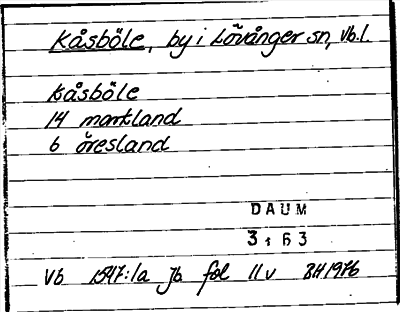 Kåsböle, by i Lövånger sn, Vb.l.
Kåsböle
14 markland
6 öresland
DAUM
3163
Vb 1547:1a Jb fol 11v BH 1976